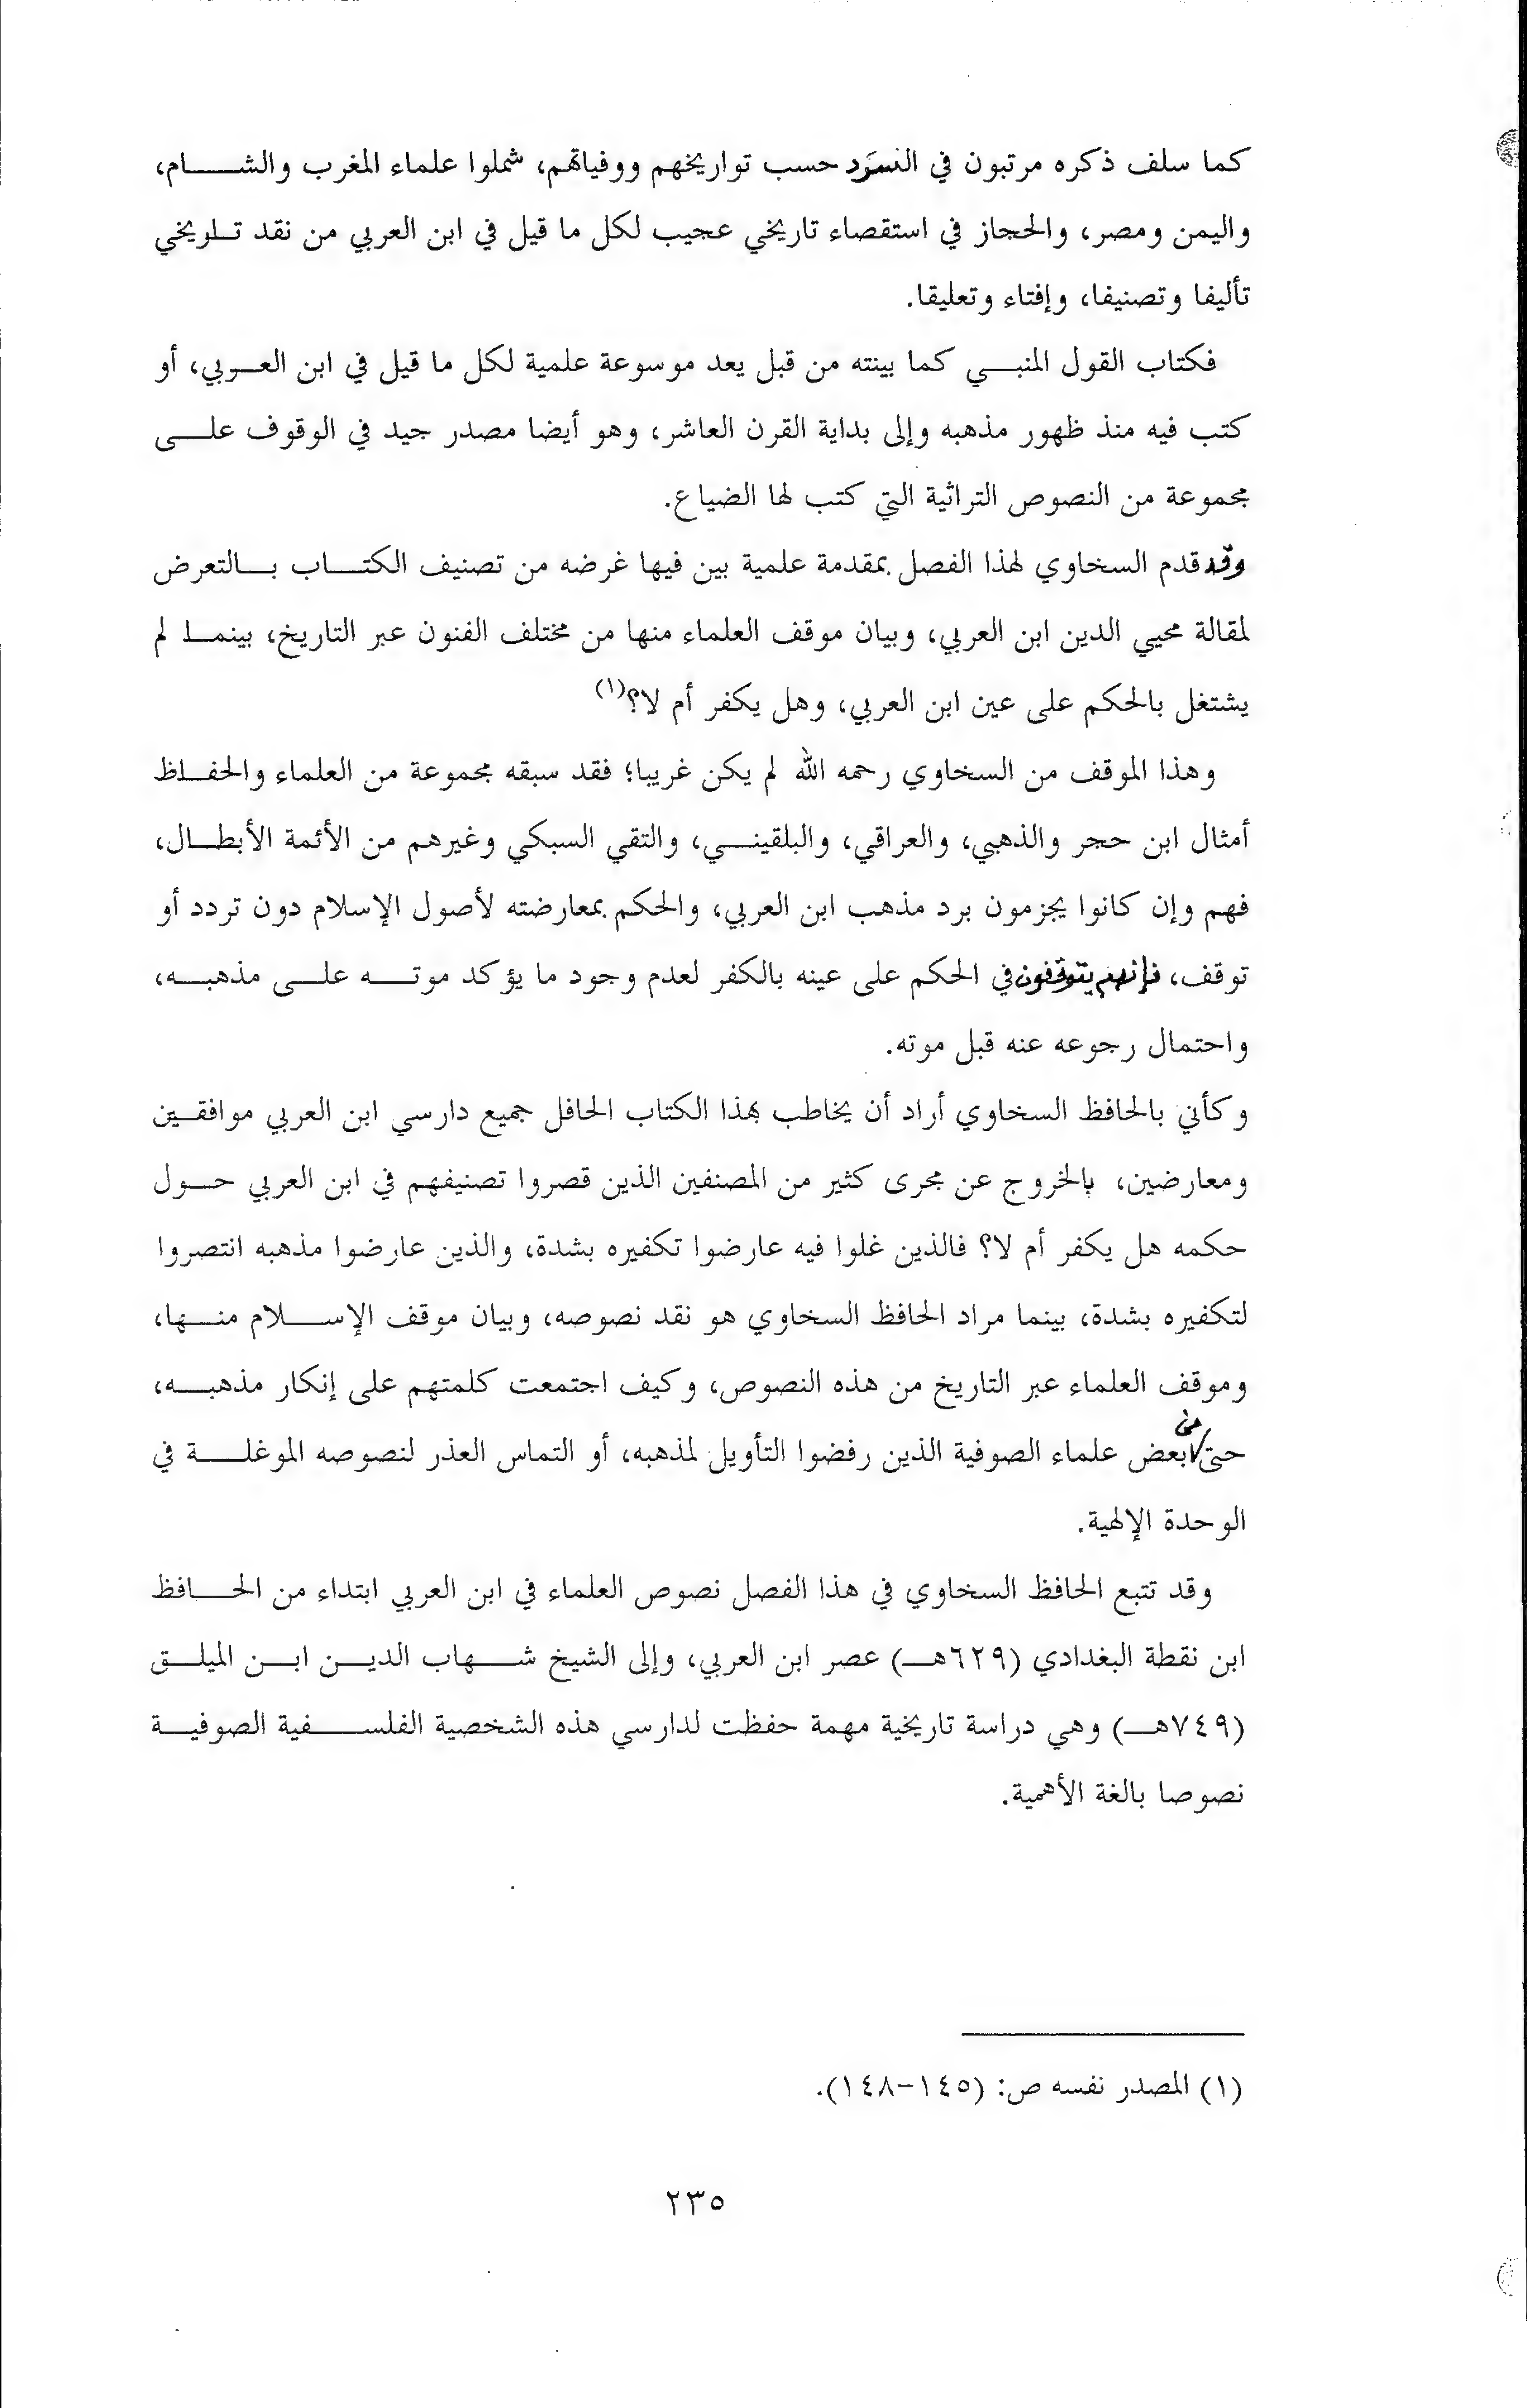 كما سلف ذكره مرتبون في السرد حسب تواريخهم ووفياتهم، شملوا علماء المغرب والشام،
واليمن ومصر، والحجاز في استقصاء تاريخي عجيب لكل ما قيل في ابن العربي من نقد تاريخي
تأليفا وتصنيفا، وإفتاء وتعليقا.
فكتاب القول المنبي كما بينته من قبل يعد موسوعة علمية لكل ما قيل في ابن العربي، أو
كتب فيه منذ ظهور مذهبه وإلى بداية القرن العاشر، وهو أيضا مصدر جيد في الوقوف على
مجموعة من النصوص التراثية التي كتب لها الضياع.
وقد قدم السخاوي لهذا الفصل بمقدمة علمية بين فيها غرضه من تصنيف الكتاب بالتعرض
لمقالة محيي الدين ابن العربي، وبيان موقف العلماء منها من مختلف الفنون عبر التاريخ، بينما لم
يشتغل بالحكم على عين ابن العربي، وهل يكفر أم لا؟(١)
وهذا الموقف من السخاوي رحمه الله لم يكن غريبا؛ فقد سبقه مجموعة من العلماء والحفاظ
أمثال ابن حجر والذهبي، والعراقي، والبلقيني، والتقي السبكي وغيرهم من الأئمة الأبطال،
فهم وإن كانوا يجزمون برد مذهب ابن العربي، والحكم بمعارضته لأصول الإسلام دون تردد أو
توقف، فإنهم يتوقفون في الحكم على عينه بالكفر لعدم وجود ما يؤكد موته على مذهبه،
واحتمال رجوعه عنه قبل موته.
وكأني بالحافظ السخاوي أراد أن يخاطب بهذا الكتاب الحافل جميع دارسي ابن العربي موافقين
ومعارضين، بالخروج عن مجرى كثير من المصنفين الذين قصروا تصنيفهم في ابن العربي حول
حكمه هل يكفر أم لا؟ فالذين غلوا فيه عارضوا تكفيره بشدة، والذين عارضوا مذهبه انتصروا
لتكفيره بشدة، بينما مراد الحافظ السخاوي هو نقد نصوصه، وبيان موقف الإسلام منها،
وموقف العلماء عبر التاريخ من هذه النصوص، وكيف اجتمعت كلمتهم على إنكار مذهبه،
حتى من بعض علماء الصوفية الذين رفضوا التأويل لمذهبه، أو التماس العذر لنصوصه الموغلة في
الوحدة الإلهية.
وقد تتبع الحافظ السخاوي في هذا الفصل نصوص العلماء في ابن العربي ابتداء من الحافظ
ابن نقطة البغدادي (٦٢٩هـ) عصر ابن العربي، وإلى الشيخ شهاب الدين ابن الميلق
(٧٤٩هـ) وهي دراسة تاريخية مهمة حفظت لدارسي هذه الشخصية الفلسفية الصوفية
نصوصا بالغة الأهمية.
(١) المصدر نفسه ص: (١٤٥-١٤٨).
٢٣٥